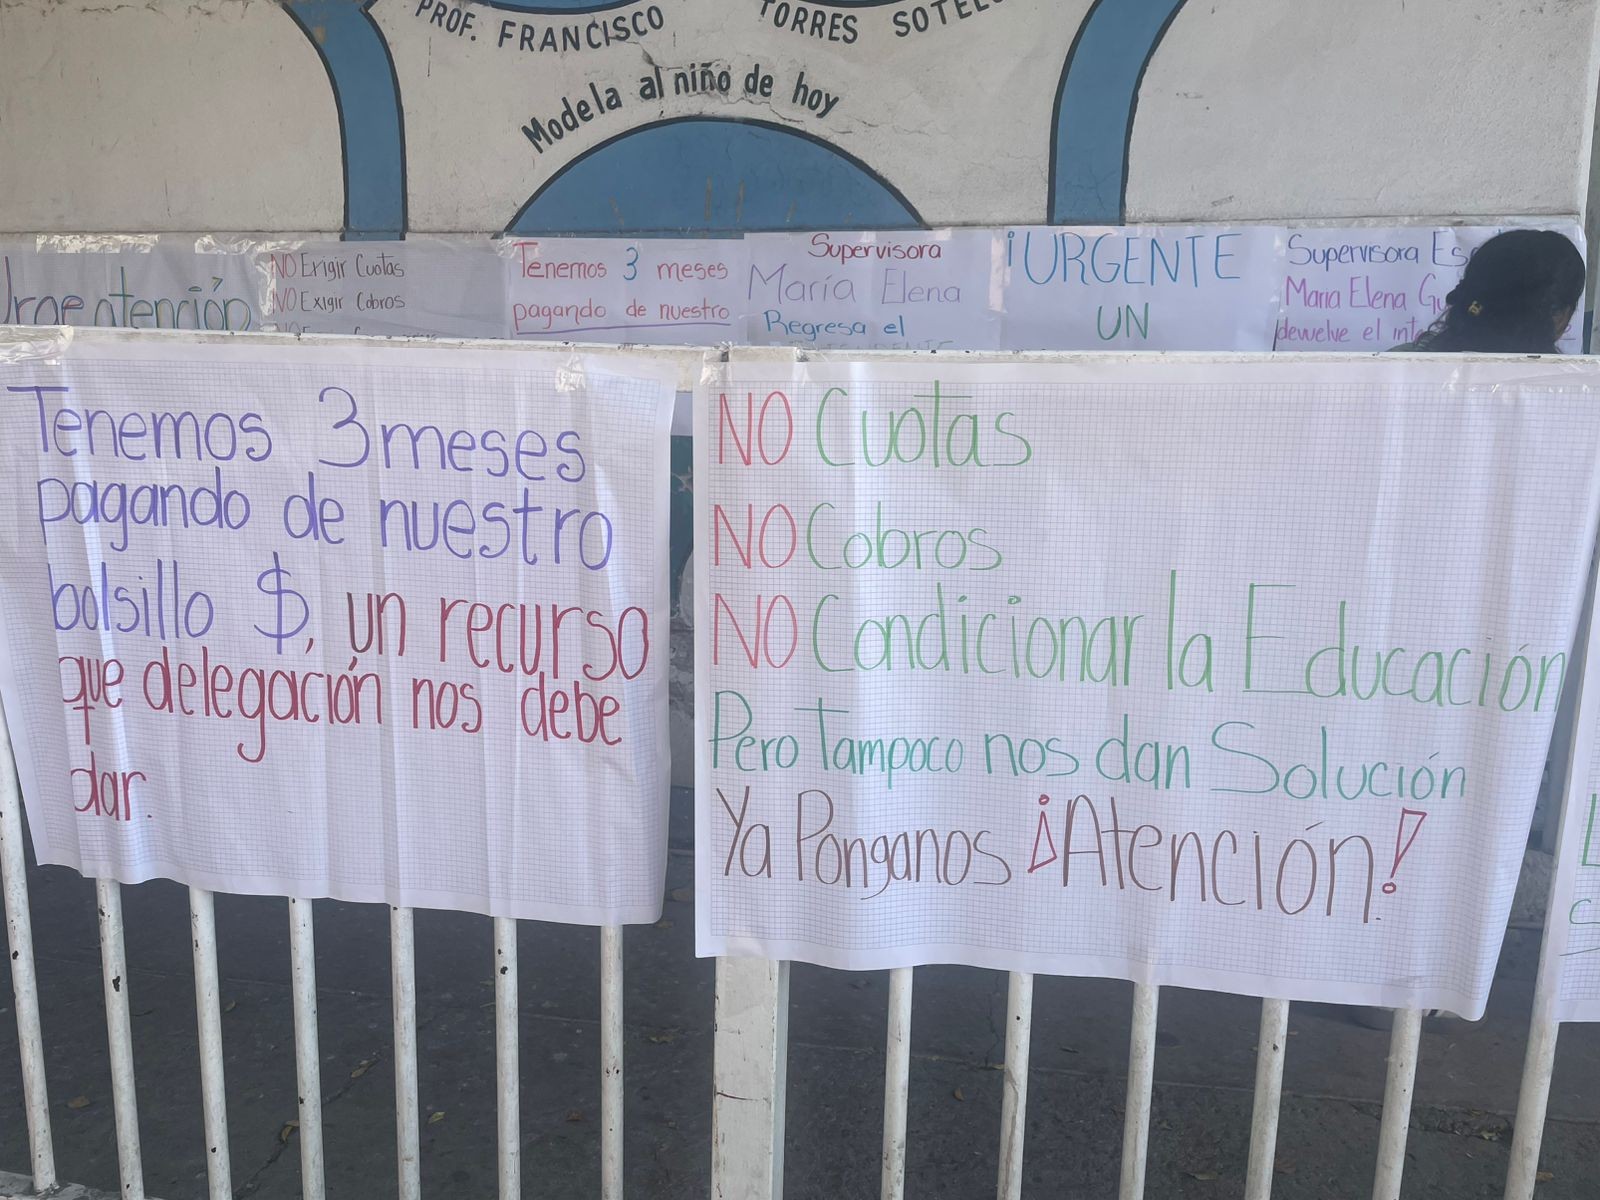 PROF. FRANCISCO TORRES SOTELO
Modela al niño de hoy
Urge atención
NO Exigir Cuotas
NO Exigir Cobros
Tenemos 3 meses
pagando de nuestro
Supervisora
María Elena
Regresa el
¡URGENTE
UN
Supervisora
Maria Elena
devuelve el
Tenemos 3 meses
pagando de nuestro
bolsillo $, un recurso
que delegación nos debe
dar.
NO Cuotas
NO Cobros
NO Condicionar la Educación
Pero Tampoco nos dan Solución
Ya Ponganos ¡Atención!